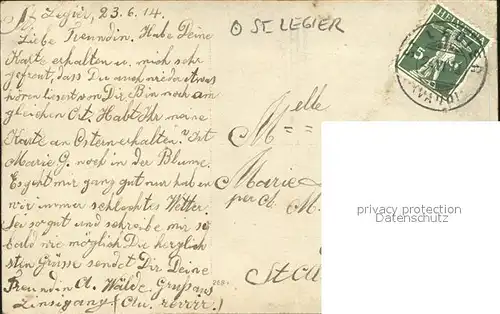 St. Legier, 23.6.14.
Liebe Freundin. Habe Deine
Karte erhalten u. mich sehr
gefreut, dass Du auch wieder etwas
hören liesest von Dir. Bin noch am
gleichen Ort. Habt Ihr meine
Karte an Ostern erhalten? Ist
Marie G. noch in der Blume.
Es geht mir ganz gut nur haben
wir immer schlechtes Wetter.
Sei so gut und schreibe mir so
bald wie möglich Die herzlich
sten Grüsse sendet Dir Deine
Freundin A. Wälde. Gruss aus
O ST. LEGIER
HELVETIA
5
(VAUD)
Melle
Marie
per A. M.
privacy protection
Datenschutz